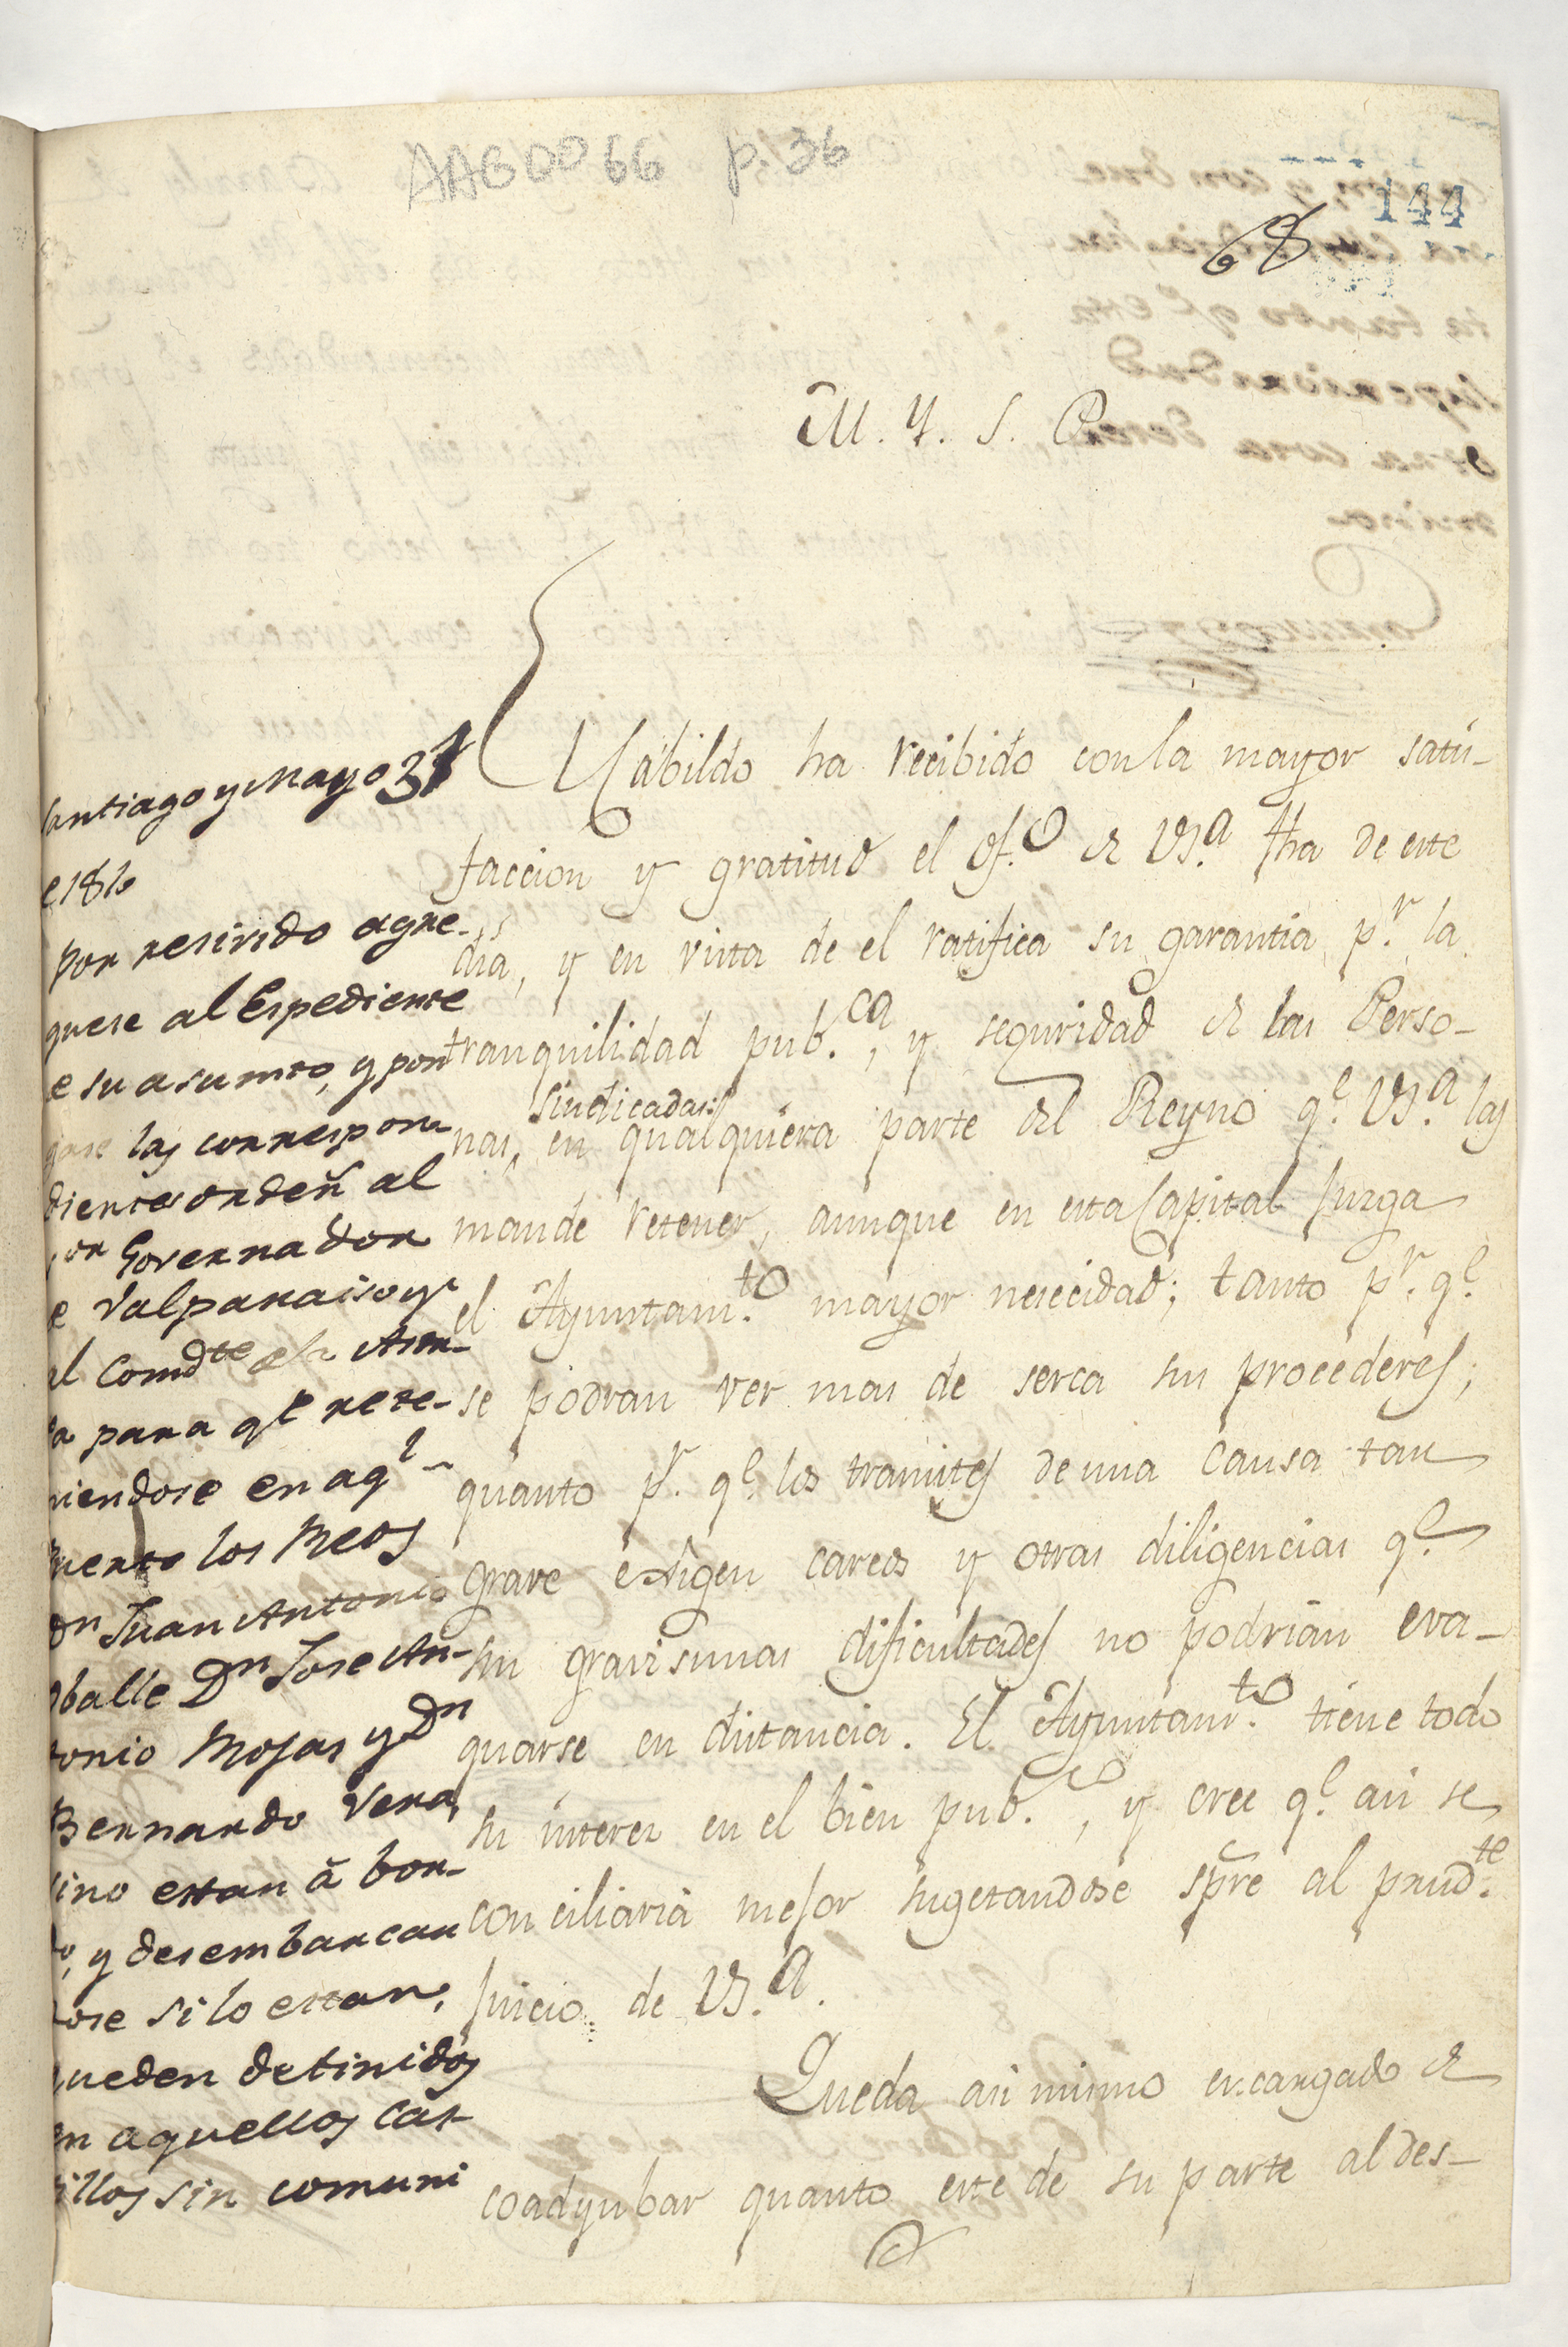 AAG0066 p. 36
144
68
M. Y. S. P.
El Cabildo ha recibido con la mayor satis-
faccion y gratitud el of.o de VS.a fha de este
dia, y en vista de el ratifica su garantia p.r la
tranquilidad pub.ca, y seguridad de las Perso-
nas sindicadas, en qualquiera parte del Reyno q.e VS.a las
mande retener, aunque en esta Capital Jusga
el Ayuntam.to mayor nesecidad; tanto p.r q.e
se podran ver mas de serca sus procederes;
quanto p.r q.e los tramites de una causa tan
grave exigen careos y otras diligencias q.e
sin gravisimas dificultades no podrian eva-
quarse en distancia. El Ayuntam.to tiene todo
su interes en el bien pub.co, y cree q.e asi se
conciliaria mejor sugetandose spre al prud.te
Juicio de VS.a.
Queda asi mismo encargado de
coadyubar quanto este de su parte al des-
Santiago y Mayo 31
e 1810
Por resivido agre-
guese al Espediente
e su asumto, y pon
gase las correspon-
dientes orden al
or Governador
e Valparaiso y
al Comdte de la
a para qe rete-
niendose en aql
puerto los Reos
Dn Juan Antonio
Oballe Dn Jose An-
tonio Rojas y Dn
Bernardo Vera,
sino estan â bor-
do, y desembarcan
dose si lo estan,
queden detinidos
en aquellos Cas-
tillos sin comuni